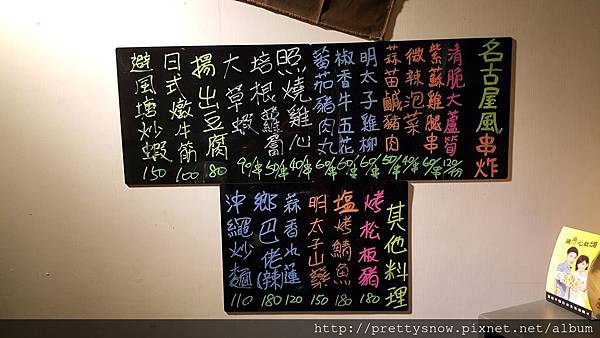 名古屋風串炸
清脆大蘆筍 120/份
紫蘇雞腿串 60/串
微辣泡菜 40/串
蒜苗鹹豬肉 50/串
明太子雞柳 60/串
椒香牛五花 60/串
蕃茄豬肉丸 60/串
照燒雞心 40/串
培根蘿蔔 50/串
大草蝦 90/串
揚出豆腐 80
日式燉牛筋 100
避風塘炒蝦 150
其他料理
烤松板豬 180
塩烤鯖魚 180
明太子山藥 150
蒜香水蓮 120
鄉巴佬(辣) 180
沖繩炒麵 110
http://prettysnow.pixnet.net/album